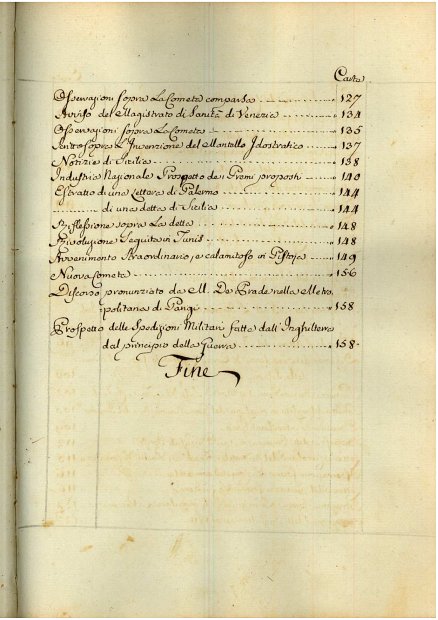 Carta
Osservazioni sopra La Cometa comparsa 127
Avviso del Magistrato di Sanità di Venezia 134
Osservazioni sopra La Cometa 135
sopra L'Invenzione del Mantello Idrostatico 137
Notizie di Sicilia 138
Industria Nazionale Prospetto de Premi proposti 140
Estratto di una Lettera di Palermo 144
di una detta di Sicilia 144
Riflessione sopra La detta 148
Risoluzione Seguita in Tunis 148
Avvenimento Straordinario, e calamitoso in Pistoja 149
Nuova Cometa 156
Discorso pronunziato da M. De Prade nella Metro
politana di Parigi 158
Prospetto delle Spedizioni Militari fatte dall'Inghilterra
dal principio della Guerra 158
Fine